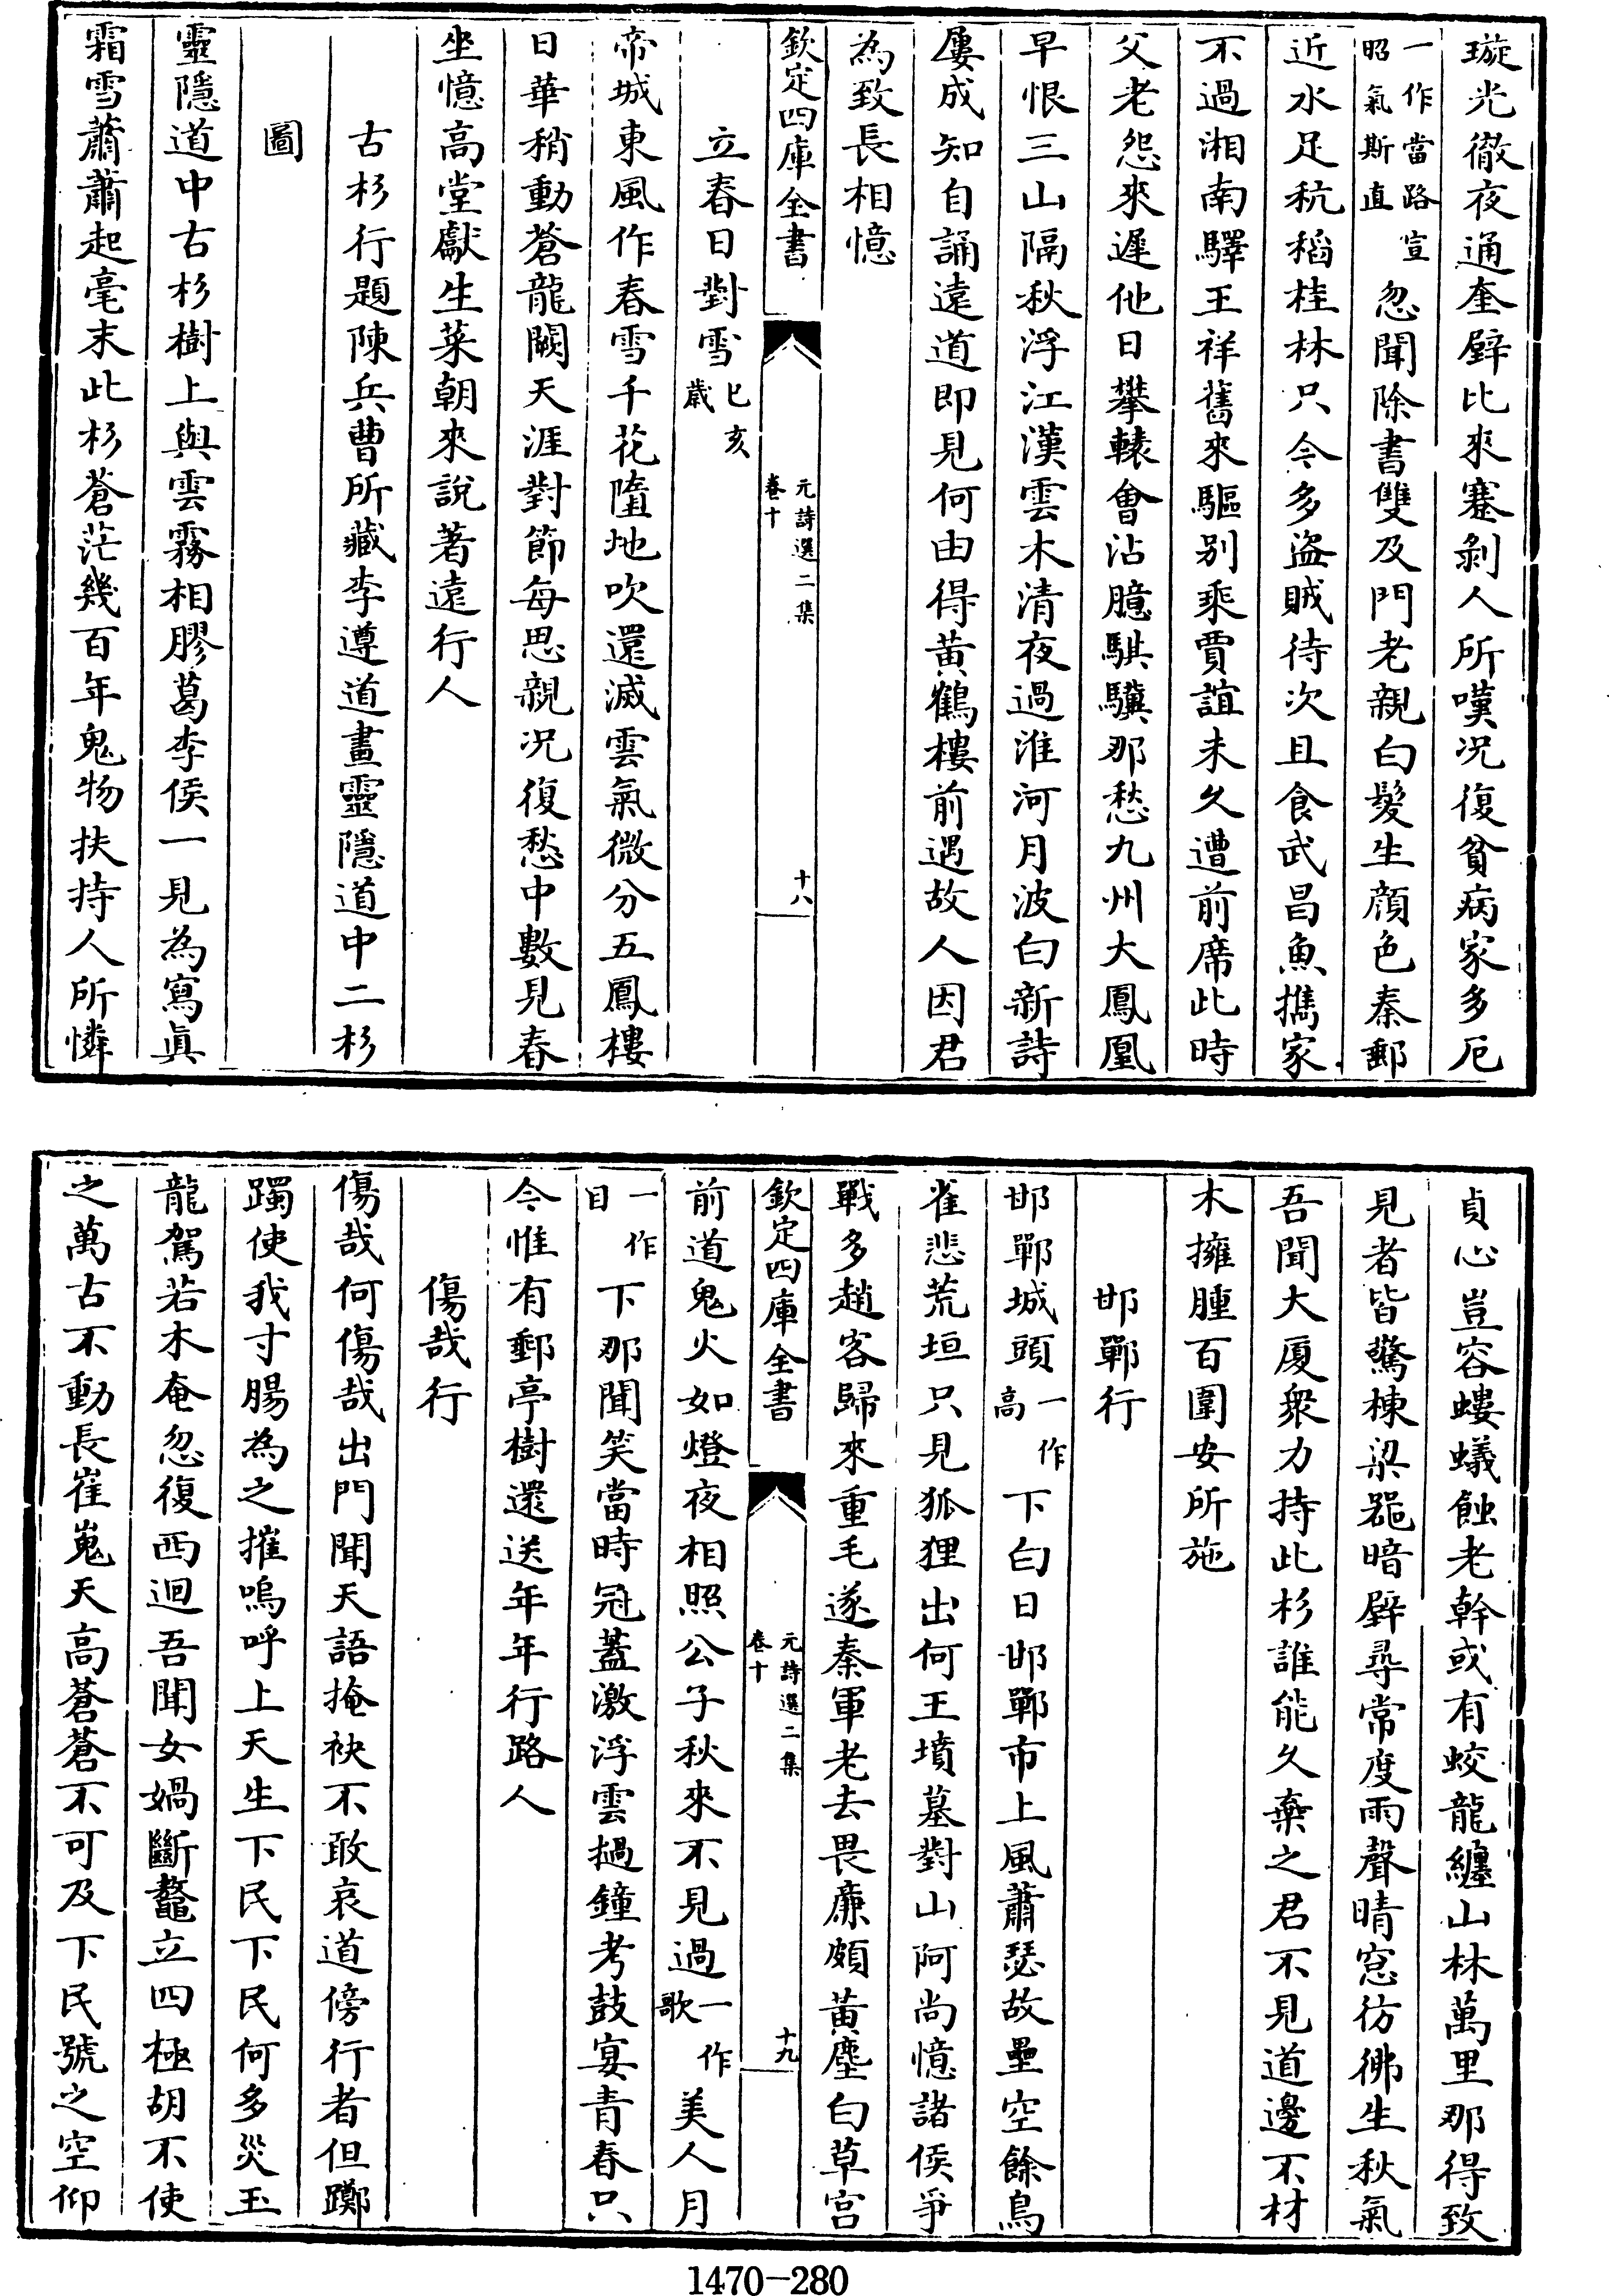 璇光徹夜通奎壁比來蹇剝人所嘆况復貧病家多厄
一作當路宣昭氣斯直忽聞除書雙及門老親白髮生顔色秦郵
近水足秔稻桂林只今多盜賊待次且食武昌魚擕家
不過湘南驛王祥舊來驅别乘賈誼未久遭前席此時
父老怨來遲他日攀轅會沾臆騏驥那愁九州大鳳凰
早恨三山隔秋浮江漢雲木清夜過淮河月波白新詩
屢成知自誦遠道即見何由得黄鶴樓前遇故人因君
為致長相憶
欽定四庫全書
元詩選二集
卷十
十八
立春日對雪己亥歲
帝城東風作春雪千花墮地吹還滅雲氣微分五鳳樓
日華稍動蒼龍闕天涯對節每思親况復愁中數見春
坐憶高堂獻生菜朝來說著遠行人
古杉行題陳兵曹所藏李遵道畫靈隱道中二杉
圖
靈隱道中古杉樹上與雲霧相膠葛李侯一見為寫眞
霜雪蕭蕭起毫末此杉蒼茫幾百年鬼物扶持人所憐
貞心豈容螻蟻蝕老幹或有蛟龍纏山林萬里那得致
見者皆驚棟梁器暗壁尋常度雨聲晴窓彷彿生秋氣
吾聞大厦衆力持此杉誰能久棄之君不見道邊不材
木擁腫百圍安所施
邯鄲行
邯鄲城頭一作高下白日邯鄲市上風蕭瑟故壘空餘鳥
雀悲荒垣只見狐狸出何王墳墓對山阿尚憶諸侯爭
戰多趙客歸來重毛遂秦軍老去畏廉頗黄塵白草宫
欽定四庫全書
元詩選二集
卷十
十九
前道鬼火如燈夜相照公子秋來不見過一作歌美人月
一作日下那聞笑當時冠蓋激浮雲撾鐘考鼓宴青春只
今惟有郵亭樹還送年年行路人
傷哉行
傷哉何傷哉出門聞天語掩袂不敢哀道傍行者但躑
躅使我寸腸為之摧嗚呼上天生下民下民何多災玉
龍駕若木奄忽復西迴吾聞女媧斷鼇立四極胡不使
之萬古不動長崔嵬天高蒼蒼不可及下民號之空仰
1470-280